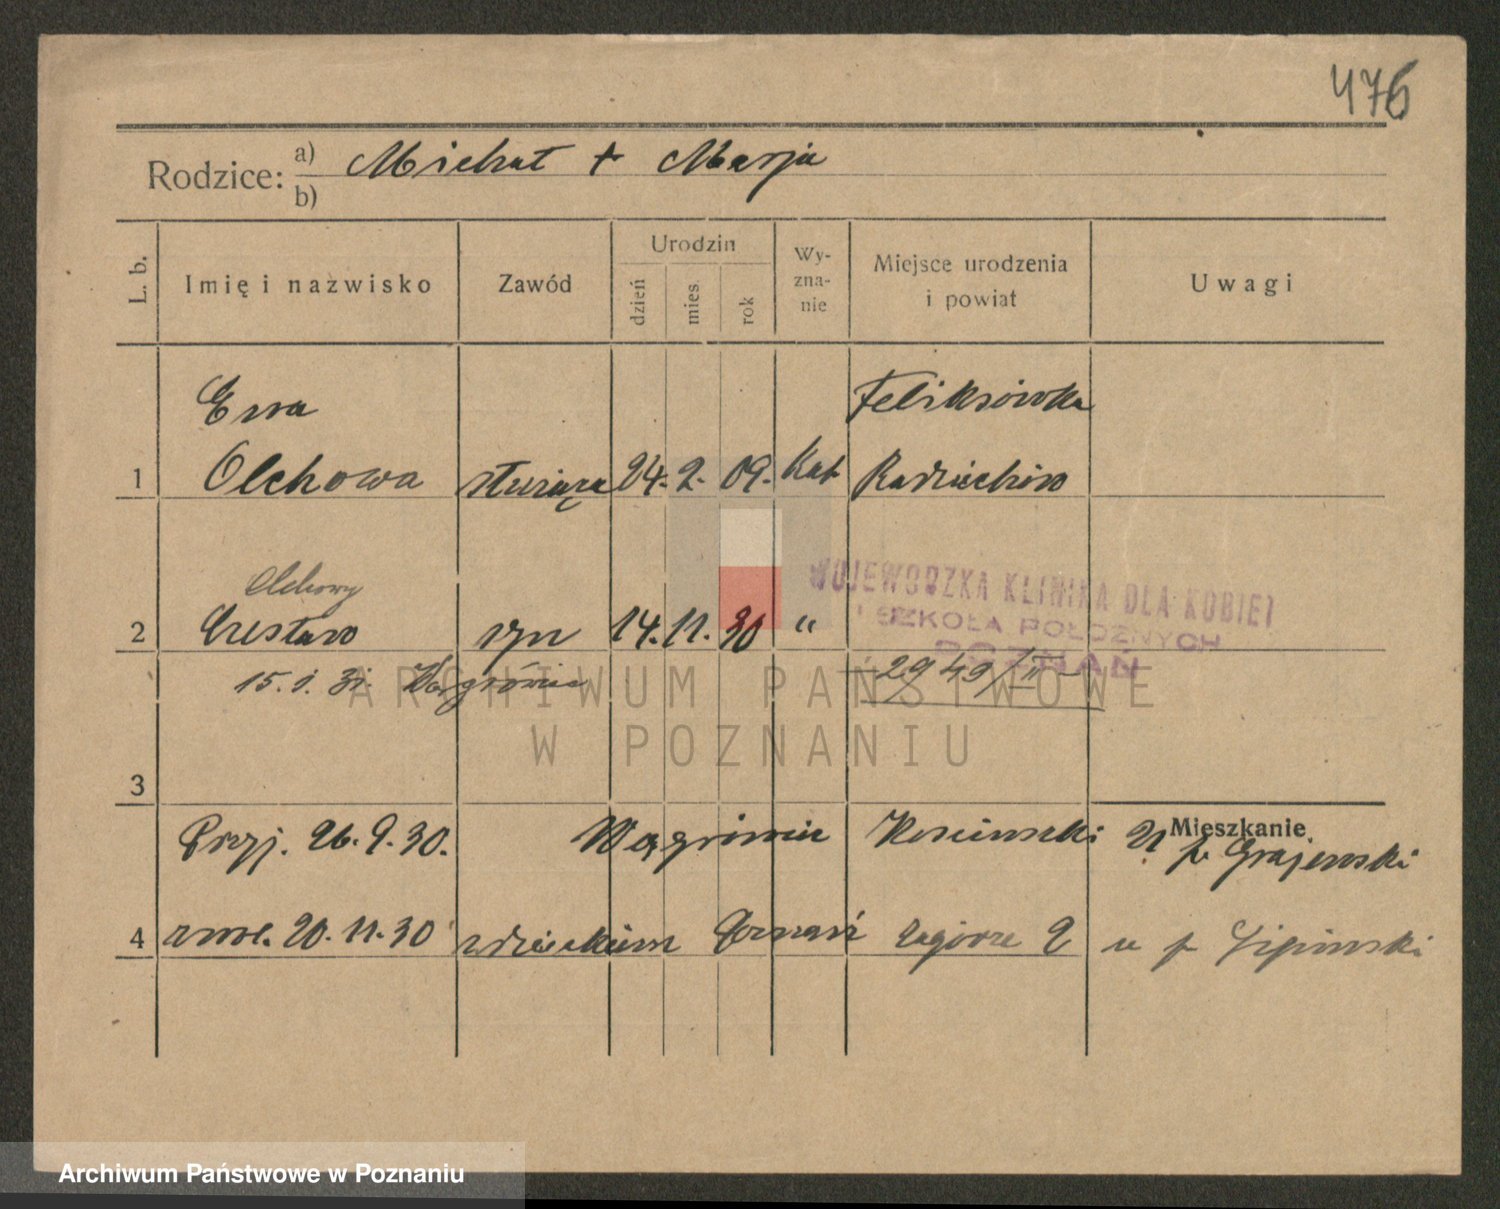 476
Rodzice: a) Michał + Marja
b)
L. b. Imię i nazwisko Zawód Urodzin dzień mies. rok Wy-zna-nie Miejsce urodzenia i powiat Uwagi
Ewa Feliksówka
1 Olchowa służąca 24. 2. 09. Kat Radziechów
Olchowy
2 Czesław syn 14. 11. 30 "
WOJEWÓDZKA KLINIKA DLA KOBIET
I SZKOŁA POŁOŻNYCH
POZNAŃ
15. 1. 31. Wągrówiec 2949/II
ARCHIWUM PAŃSTWOWE
W POZNANIU
3
Mieszkanie
Przyj. 26. 9. 30. Wągrówiec 21 p. Grajewski
4 zwol. 20. 11. 30 z dzieckiem Poznań Zagórze 2 u p.
Archiwum Państwowe w Poznaniu